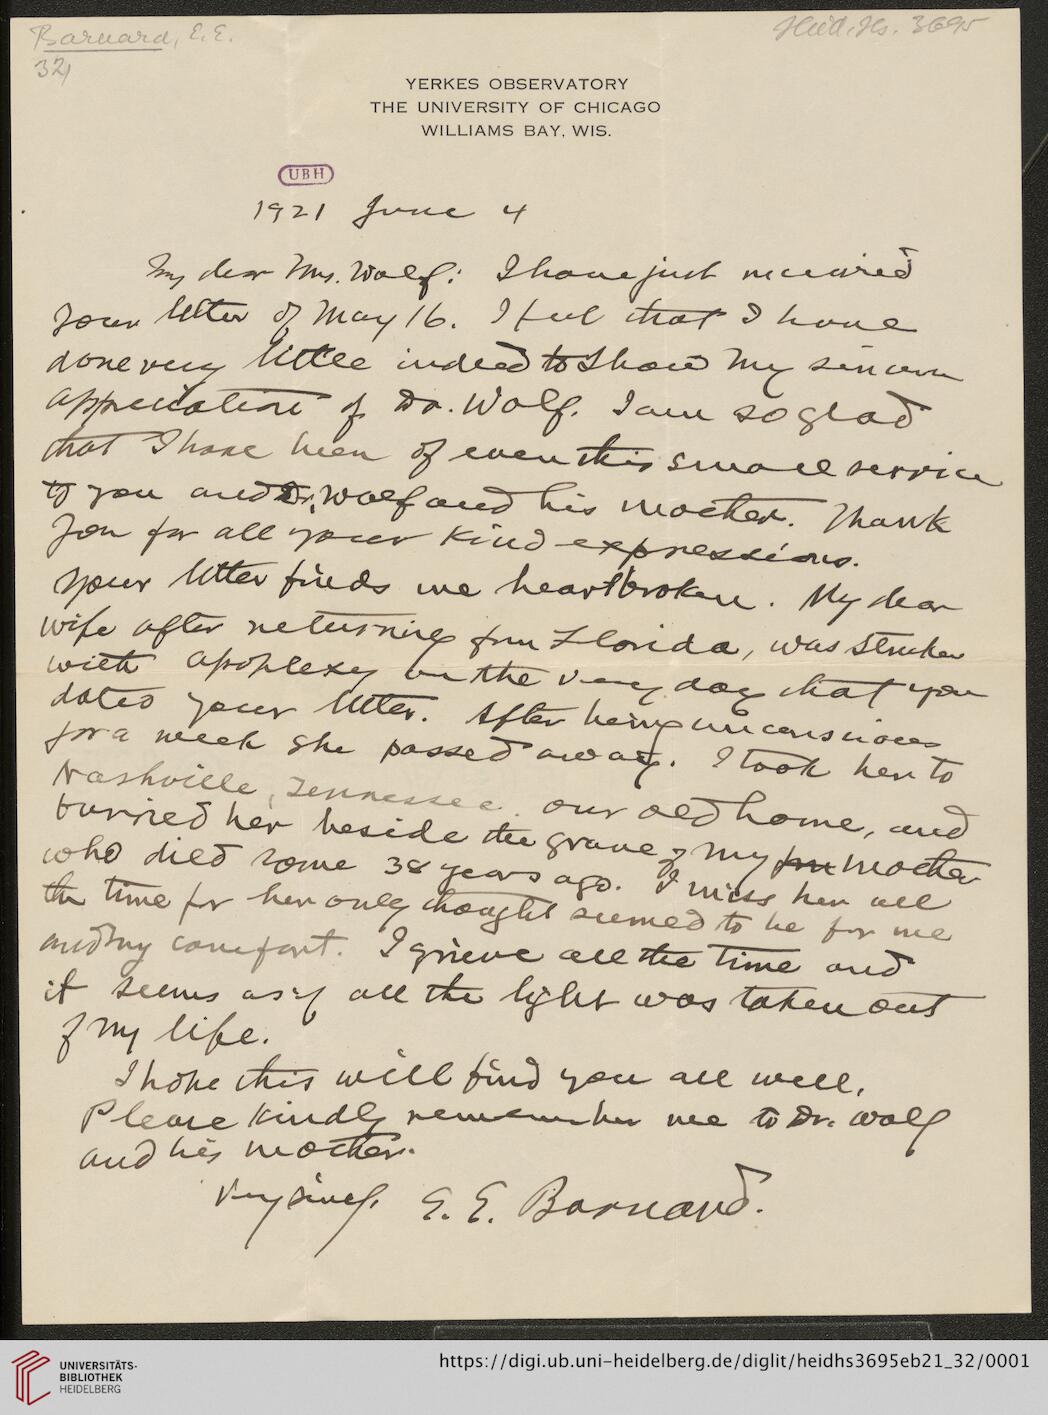 Barnard, E. E.
32,
Heid. Hs. 3695
YERKES OBSERVATORY
THE UNIVERSITY OF CHICAGO
WILLIAMS BAY, WIS.
UBH
1921 June 4
My dear Mrs. Wolf: I have just received
your letter of May 16. I feel that I have
done very little indeed to show my sincere
appreciation of Dr. Wolf. I am so glad
that I have been of even this small service
to you and Dr. Wolf and his mother. Thank
you for all your kind expressions.
Your letter finds me heartbroken. My dear
wife after returning from Florida, was stricken
with apoplexy on the very day that you
dated your letter. After being unconscious
for a week she passed away. I took her to
Nashville, Tennessee our old home, and
burried her beside the grave of my mother
who died some 38 years ago. I miss her all
the time for her only thought seemed to be for me
and my comfort. I grieve all the time and
it seems as if all the light was taken out
of my life.
I hope this will find you all well.
Please kindly remember me to Dr. Wolf
and his mother.
Very sincy. E. E. Barnard.
UNIVERSITÄTS-
BIBLIOTHEK
HEIDELBERG
https://digi.ub.uni-heidelberg.de/diglit/heidhs3695eb21_32/0001